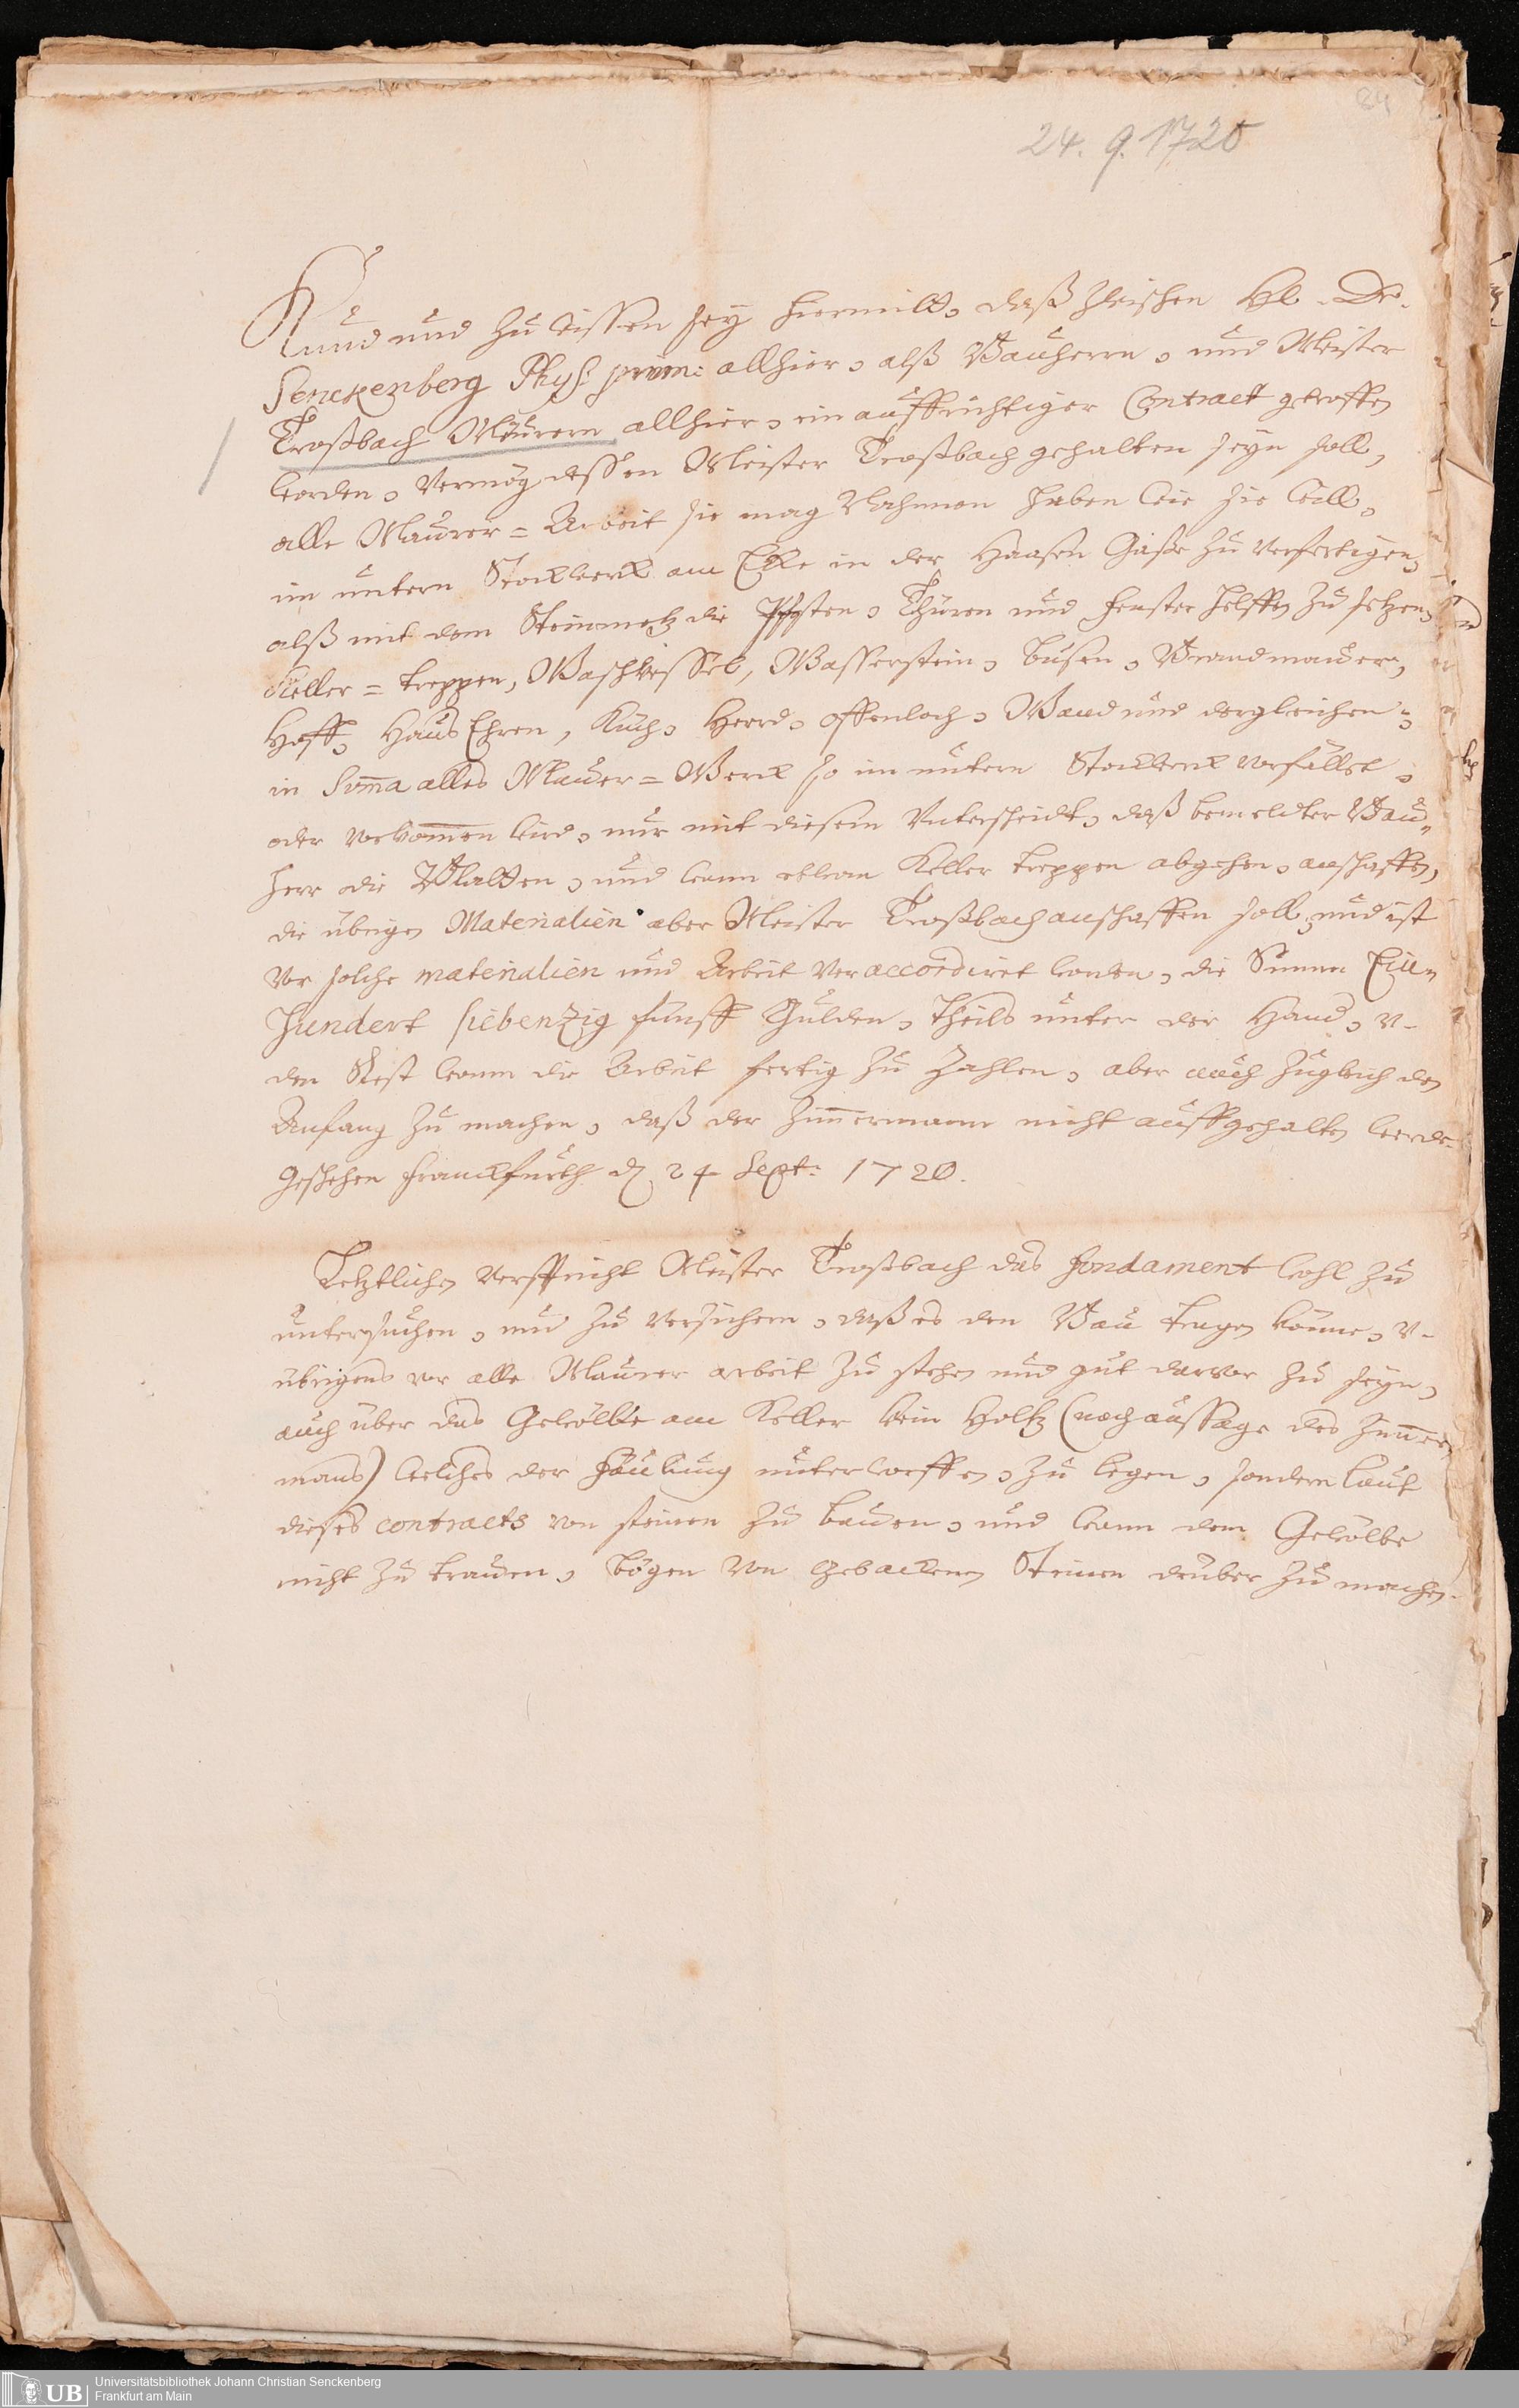 84
24. 9. 1720
Kund und zu wissen sey hiermitt, daß zwischen H. Dr.
Senckenberg Phys: prim: allhier, alß Bauherrn, und Meister
Troßbach Meürern allhier, ein auffrichtiger Contract getroffen
worden, Vermög dessen Meister Troßbach gehalten seyn soll,
alle Maurer = Arbeit sie mag Nahmen haben wie sie will,
im untern Stockwerk am Eke in der Haasen Gaße zu verfertigen,
alß mit dem Steinmetz die Pfosten, Thüren und fenster helffen zu setzen,
Keller = treppen, Waschkessel, Wasserstein, busen, Brandmauer,
Hoff, Haus Ehren, Küch, Heerd, offenloch, Wand und dergleichen,
in Suma alles Mauer = Werck so im untern Stockwerck vorfället,
oder vorkommen wird, nur mit diesem Unterscheidt, daß bemeldter Bau„
herr die Platten, und wann etwan Keller treppen abgehen, anschaffen,
die übrigen Materialien aber Meister Troßbach anschaffen soll, und ist
vor solche materialien und Arbeit veraccordiret worden, die Summ Ein„
hundert siebenzig fünff Gulden, theils unter der Hand, u.
den Rest wann die Arbeit fertig zu zahlen, aber auch zugleich den
Anfang zu machen, daß der Zimmermann nicht auffgehalten werde.
Geschehen franckfurth d. 24 Sept: 1720.
Letztlichen verspricht Meister Troßbach das fondament wohl zu
untersuchen, und zu versichern, daß es den Bau tragen könne, u.
übrigens vor alle Maurer arbeit zu stehen und gut darvor zu seyn,
auch über das Gewölbe am Keller kein Holtz (nach aussage des Zimmer
mans) welches der fäulung unterworffen, zu legen, sondern laut
dieses contracts von steinen zu bauen, und wann dem Gewölbe
nicht zu trauen, bögen von gebackenen Steinen drüber zu machen.
UB
Universitätsbibliothek Johann Christian Senckenberg
Frankfurt am Main